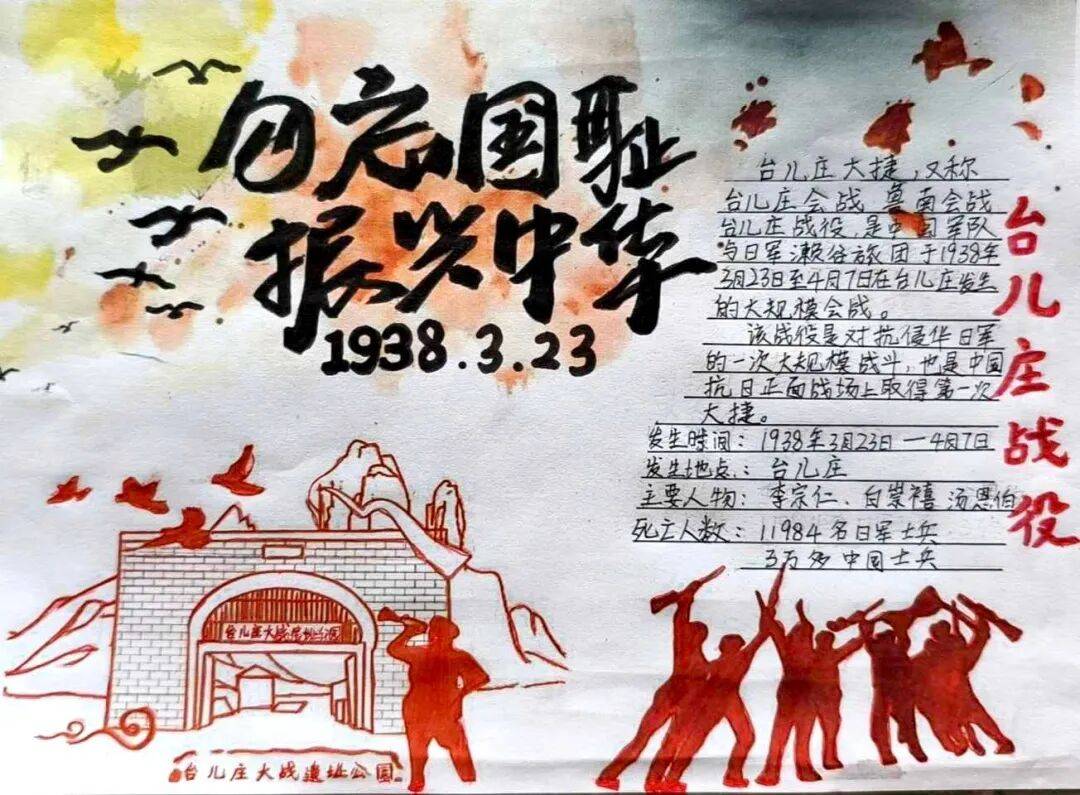 勿忘国耻
振兴中华
1938.3.23
台儿庄战役
台儿庄大捷,又称
台儿庄会战 鲁南会战
台儿庄战役,是中国军队
与日军濑谷旅团于1938年
3月23日至4月7日在台儿庄发生
的大规模会战。
该战役是对抗侵华日军
的一次大规模战斗,也是中国
抗日正面战场上取得第一次
大捷。
发生时间:1938年3月23日—4月7日
发生地点:台儿庄
主要人物:李宗仁、白崇禧 汤恩伯
死亡人数:11984名日军士兵
3万多中国士兵
台儿庄大战
台儿庄大战遗址公园